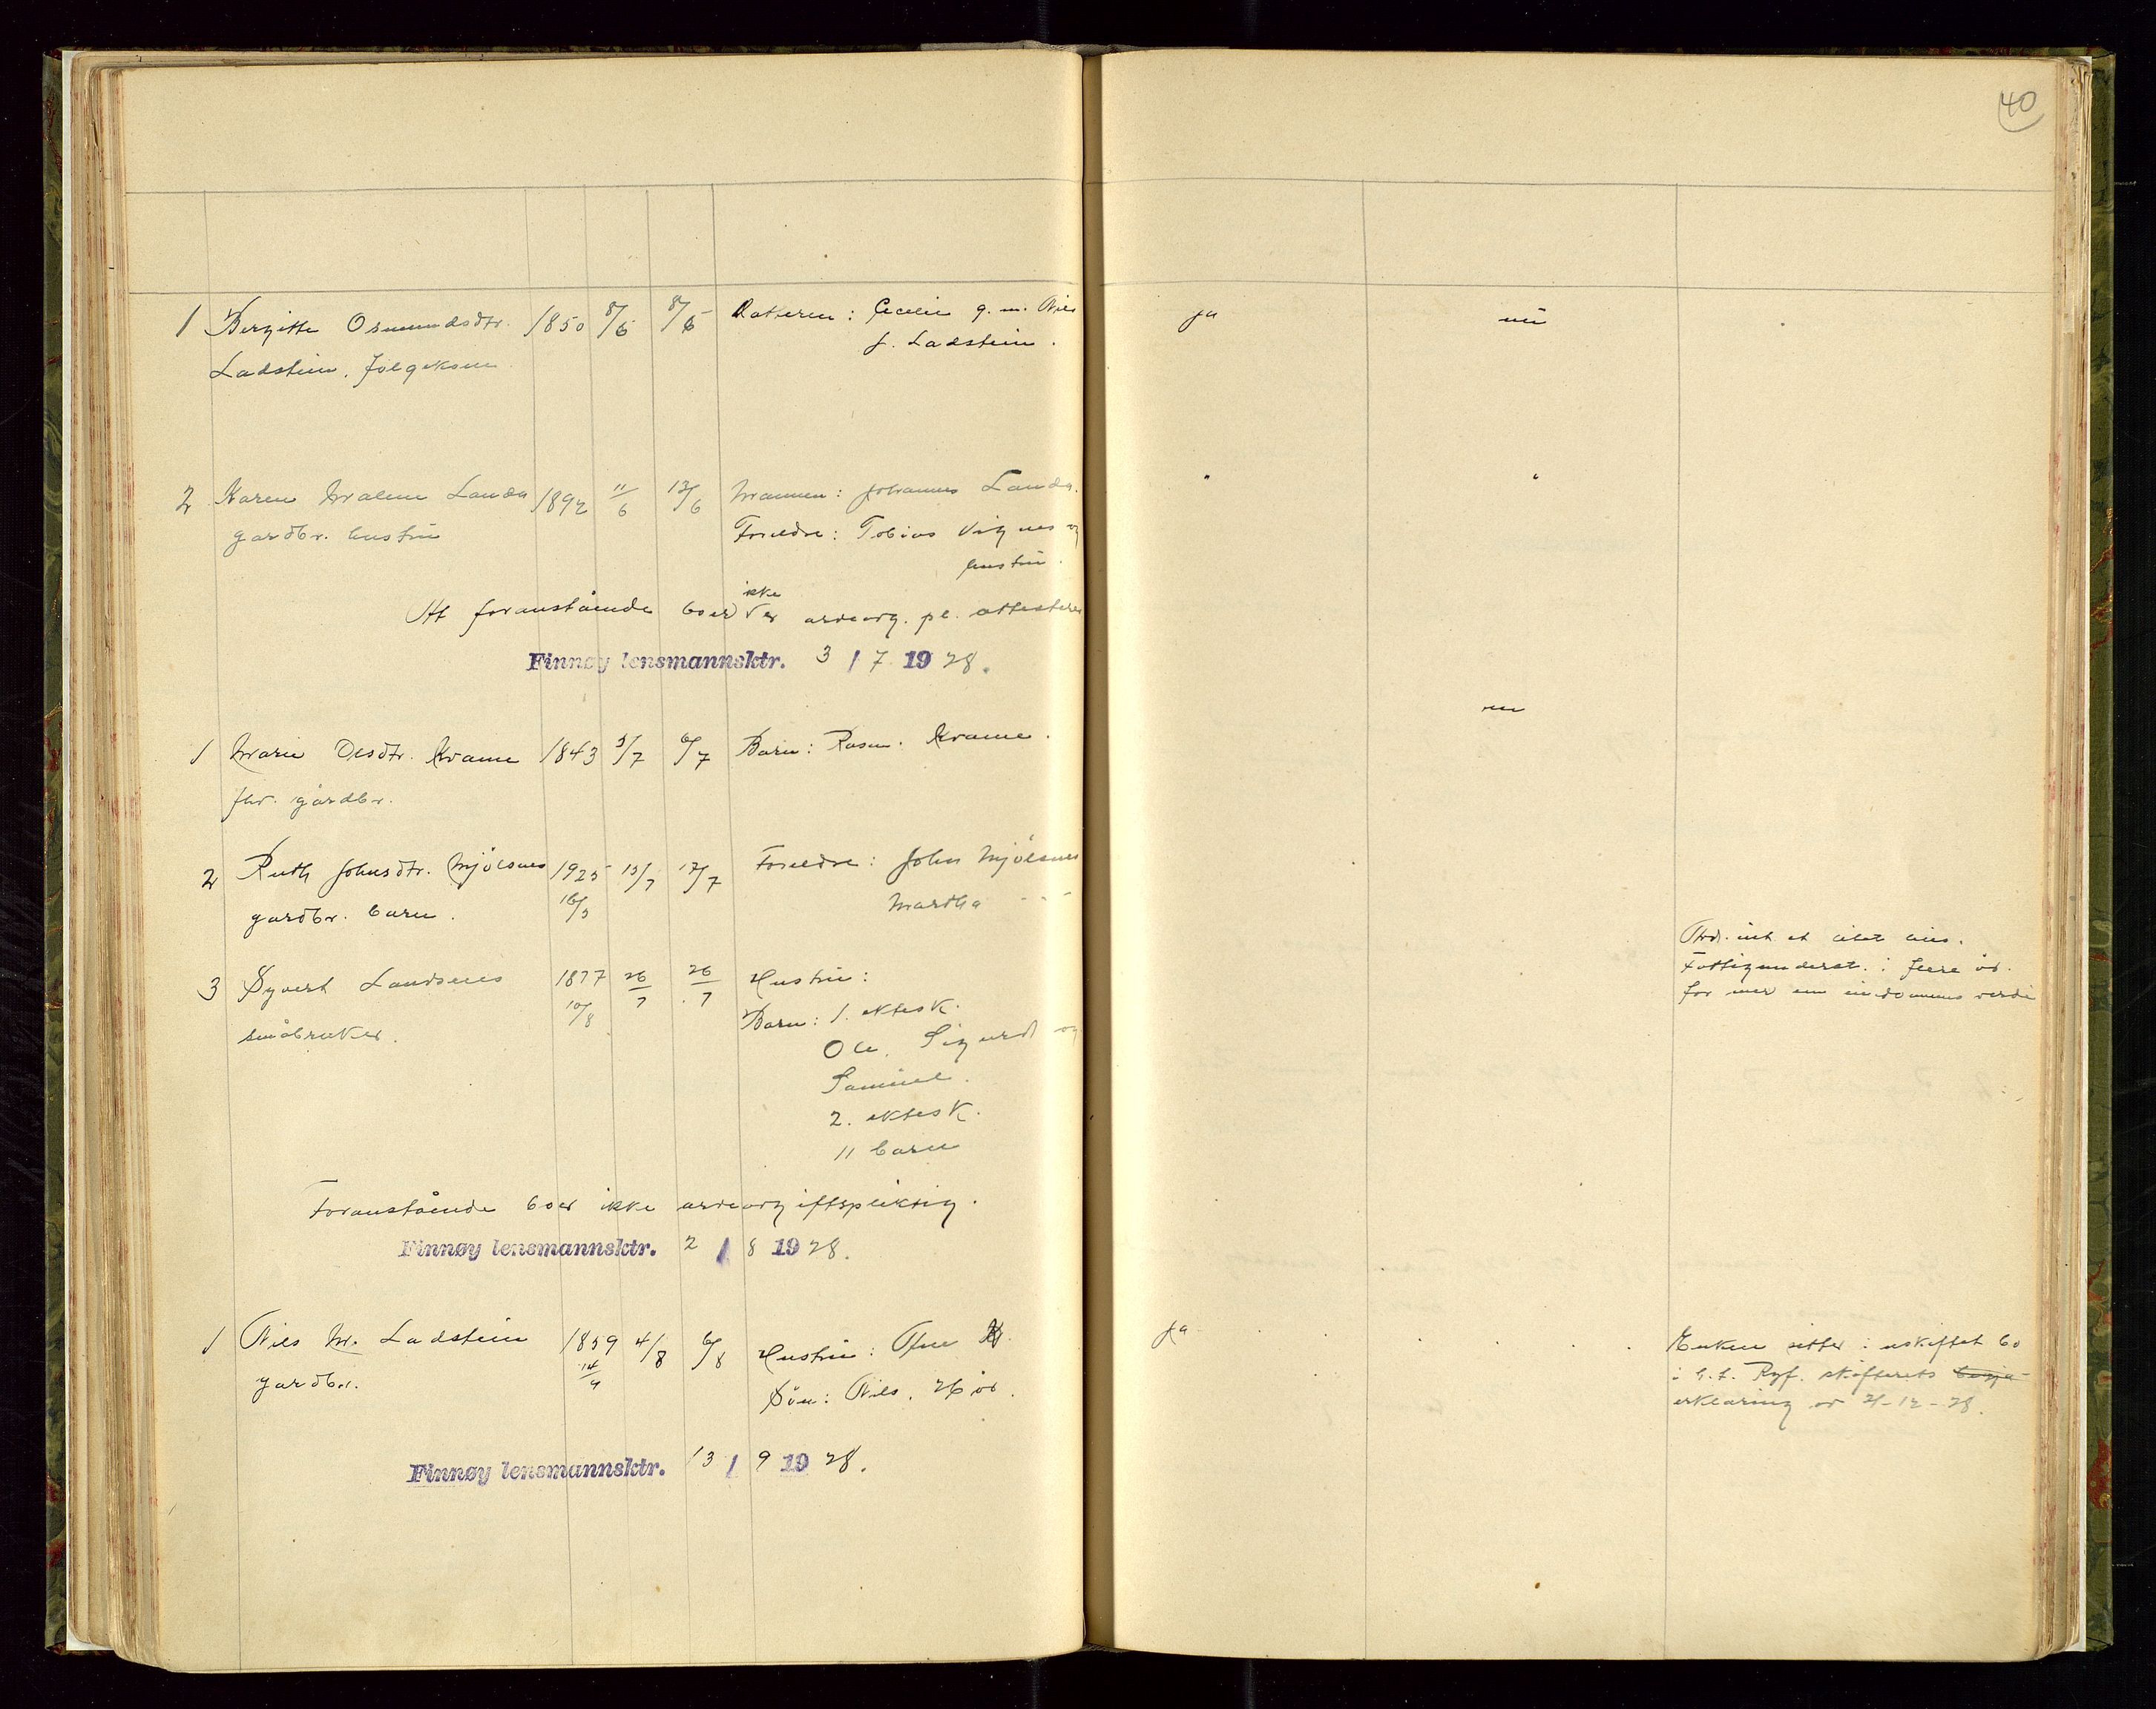 40
1 Bergitte Osmundsdtr. 1850 8/6 8/6 Datteren: Cecelie g. m. Nils ja nei
Ladstein. Følgekone J. Ladstein.
2 Karen Malene Landa 1892 11/6 12/6 Mannen: Johannes Landa. " "
gardbr. hustru Foreldre: Tobias Vignes og
hustru.
At foranstående boer ikke er arveavg. pl. attesteres
Finnøy lensmannsktr. 3 / 7 1928.
1 Marie Olsdtr. Kvame 1843 5/7 6/7 Barn: Rasm. Kvame. nei
fhv. gårdbr.
2 Ruth Johnsdtr. Mjølsnes 1925 13/7 17/7 Foreldre: John Mjølsnes
gardbr. barn. 16/3 Martha - " -
3 Syvert Landsnes 1877 26/7 26/7 Hustru:
småbruker. 10/8 Barn: 1. ektesk.
Ole, Sigurd og
Samuel.
2. ektesk.
11 barn
Fattigunderst. i flere år.
for mer enn eiendommens verdi
Foranstående boer ikke arveavgiftspliktig.
Finnøy lensmannsktr. 2 / 8 1928.
1 Nils M. Ladstein 1859 4/8 6/8 Hustru: ja
gardbr. 14/4 Søn: Nils, 26 år.
Enken sitter i uskiftet bo
i h. t. Ryf. skifteretts
erklæring av 21-12-28.
Finnøy lensmannsktr. 13 / 9 1928.